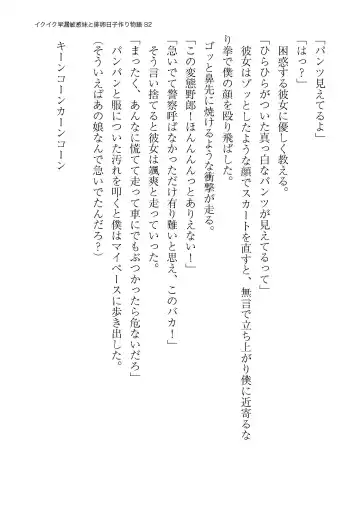 イクイク早漏敏感妹と排卵日子作り物語 82
「パンツ見えてるよ」
「はっ？」
困惑する彼女に優しく教える。
「ひらひらがついた真っ白なパンツが見えてるって」
彼女はゾッとしたような顔でスカートを直すと、無言で立ち上がり僕に近寄るな
り拳で僕の顔を殴り飛ばした。
ゴッと鼻先に焼けるような衝撃が走る。
「この変態野郎！ほんんんんっとありえない！」
「急いでて警察呼ばなかっただけ有り難いと思え、このバカ！」
そう言い捨てると彼女は颯爽と走っていった。
「まったく、あんなに慌てて走って車にでもぶつかったら危ないだろ」
パンパンと服についた汚れを叩くと僕はマイペースに歩き出した。
（そういえばあの娘なんで急いでたんだろ？）
キーンコーンカーンコーン